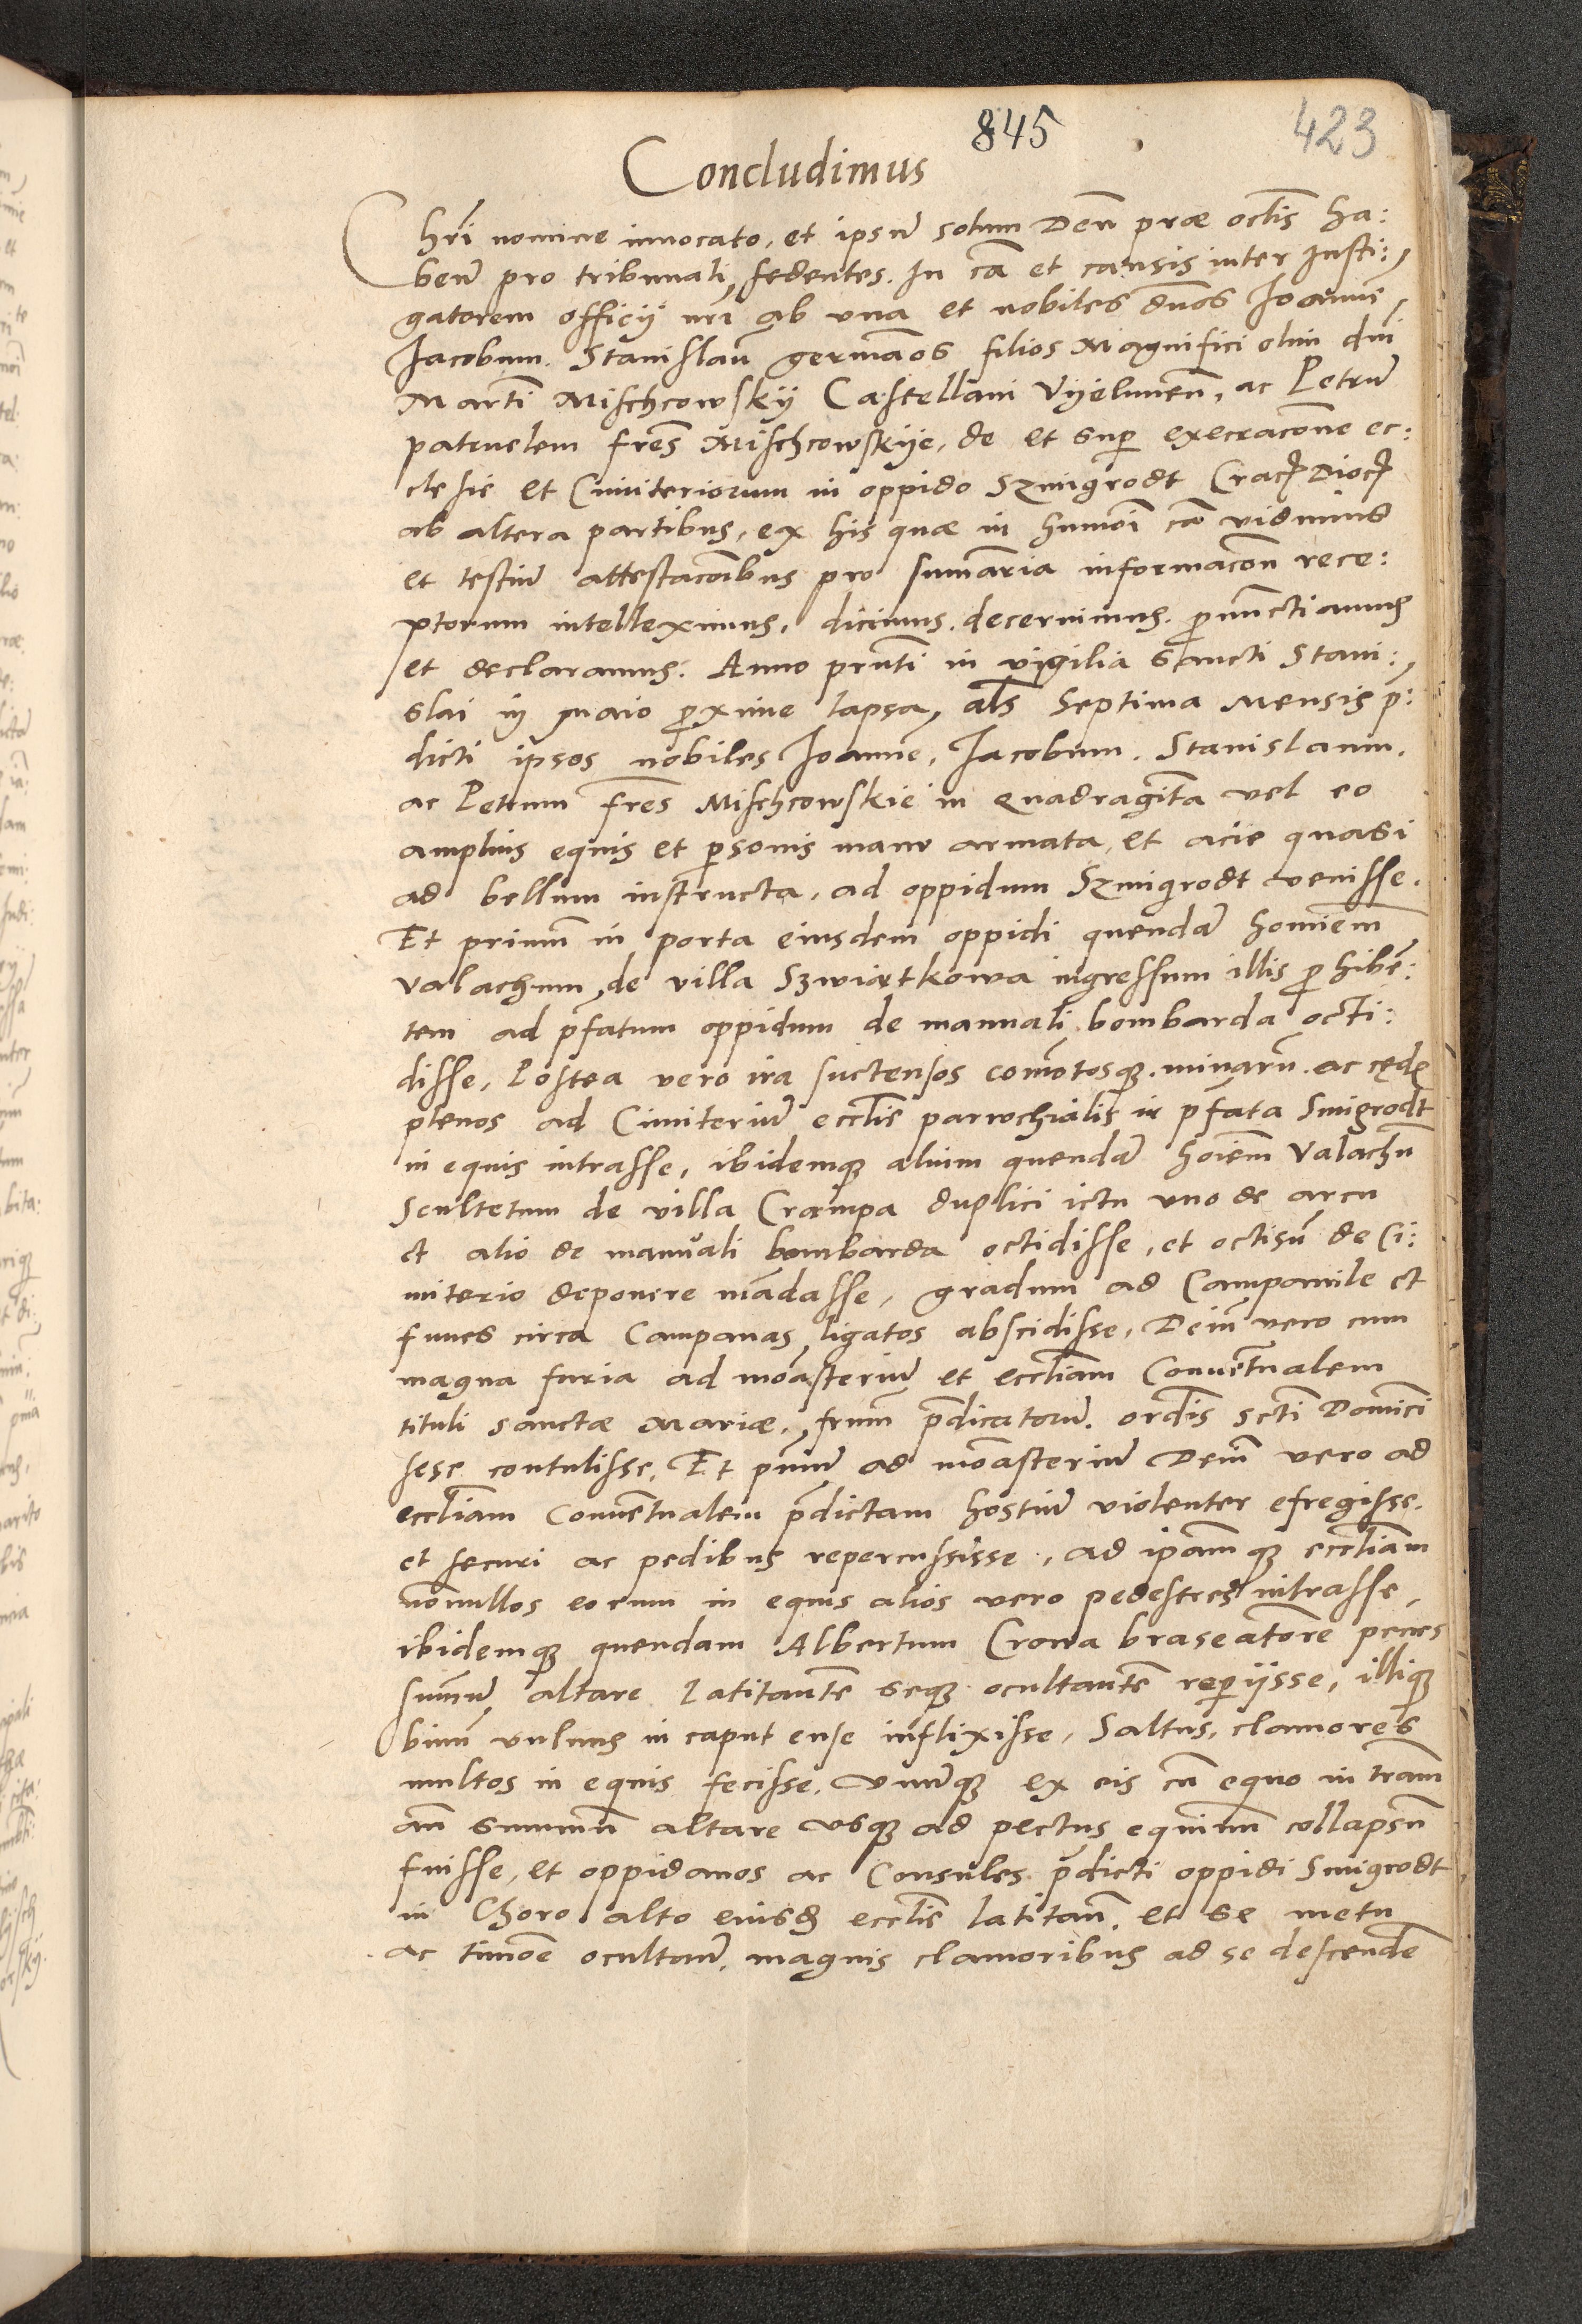 845
423
Concludimus
Chri nomine invocato, et ipsum solum Deum prae oclis ha:
ben pro tribunali sedentes. In ca et causis inter Insti:
gatorem officij nri ab una et nobiles dnos Joanne,
Jacobum. Stanislau germanos filios Magnifici olim dni
Marti Mischcowskij Castellani Vijelunen, ac Petru
patruelem fres Mischcowskije, de et sup execracone ec:
clesie et Cimiteriorum in oppido Szmigrodt Crac Dioc
ab altera partibus, ex his quae in humoi ca vidimus
et testiu attestacoibus pro summaria informacon rece:
ptorum intelleximus, dicimus. decernimus. pnunctiamus
et declaramus. Anno prnti in vigilia Sancti Stani:
slai in maio pxime lapsa, als Septima Mensis p:
dicti ipsos nobiles Joanne, Jacobum. Stanislaum.
ac Petrum fres Mischcowskie in Quadraginta vel eo
amplius equis et psonis manu armata, et acie quasi
ad bellum instructa, ad oppidum Szmigrodt venisse.
Et primum in porta eiusdem oppidi quendam hominem
valachum de villa Szwiatkowa ingressum illis phiben:
tem ad pfatum oppidum de manuali bombarda octi:
disse, Postea vero ira suctensos comotosque. minaru. ac cede
plenos ad Cimiteriu ecclis parrochialis in pfata Smigrodt
in equis intrasse, ibidemque alium quendam hoiem Valachu
Scultetum de villa Crampa duplici ictu uno de arcu
et alio de manuali bombarda octidisse, et octisu de Ci:
miterio deponere madasse, gradum ad Campanile et
funes circa Campanas ligatos abscidisse, Dein vero cum
magna furia ad moasteriu et eccliam Conventualem
tituli Sanctae Mariae, frum pdicatoru. ordis scti Dominici
sese contulisse, Et pmu ad monasteriu Dein vero ad
eccliam Conventualem pdictam hostiu violenter efregisse.
et securi ac pedibus repercussisse, ad ipamque eccliam
nonullos eorum in equis alios vero pedestres intrasse,
ibidemque quendam Albertum Crowa braseatore penes
summu altare latitante seque ocultante repijsse, illique
binu vulnus in caput ense inflixisse, Saltus, clamores
multos in equis fecisse, Vnumque ex eis cu equo in tram
an summu altare usque ad pectus equinum collapsu
fuisse, et oppidanos ac Consules pdicti oppidi Smigrodt
in Choro alto eiusd ecclis latitan, et se metu
ac timoe ocultan, magnis clamoribus ad se descende